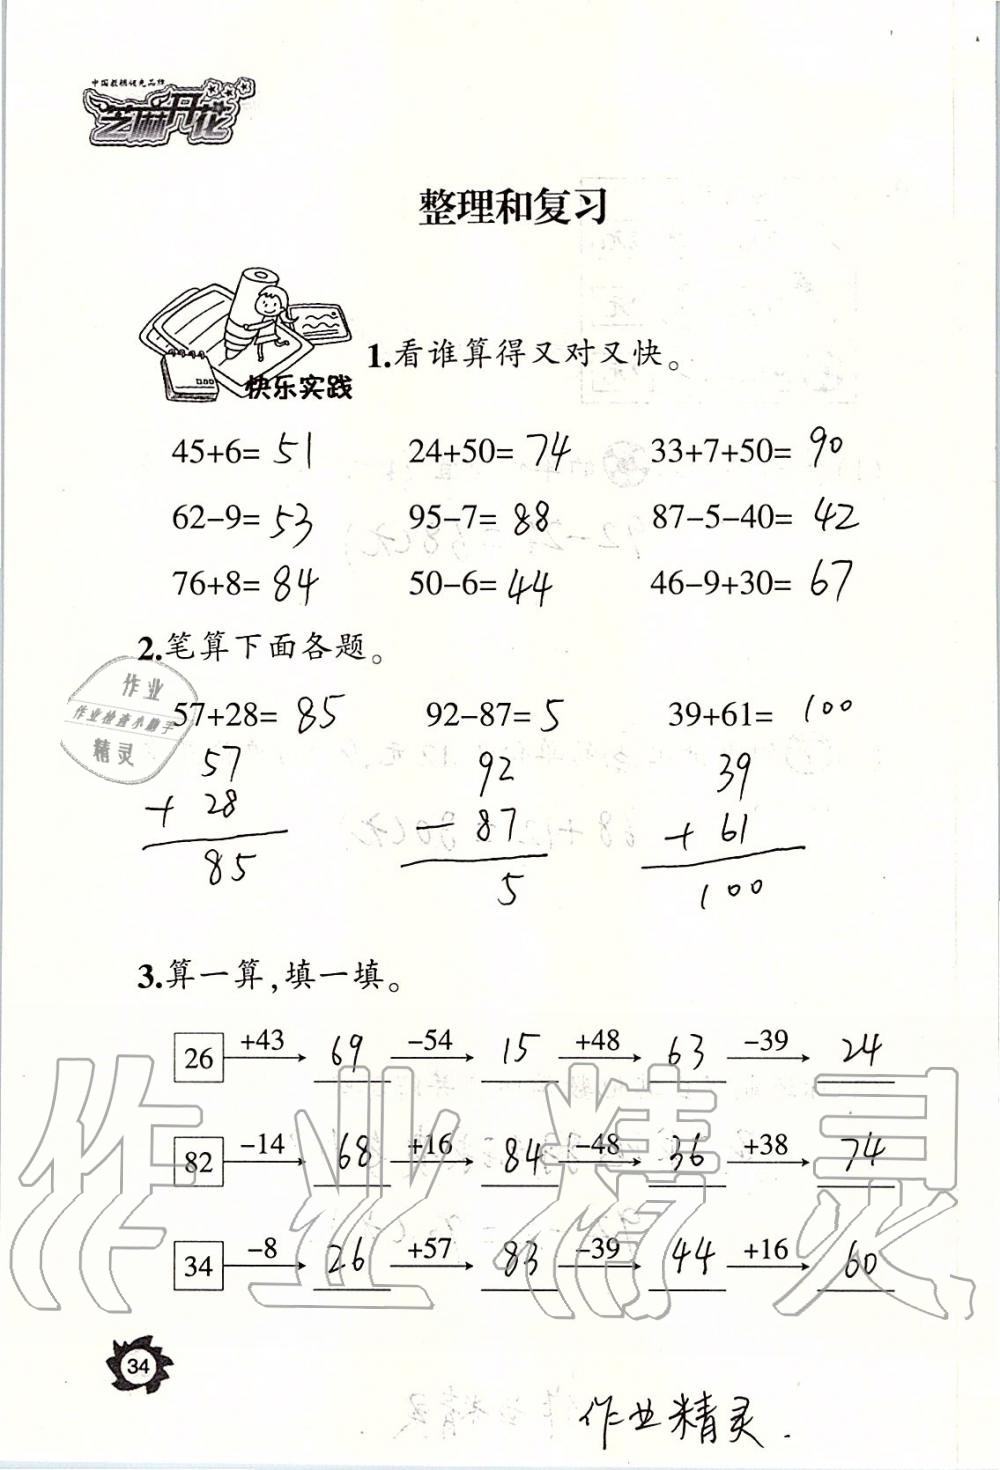 中国教辅领先品牌
芝麻开花
整理和复习
快乐实践
1.看谁算得又对又快。
45+6= 51 24+50= 74 33+7+50= 90
62-9= 53 95-7= 88 87-5-40= 42
76+8= 84 50-6= 44 46-9+30= 67
2.笔算下面各题。
作业
作业检查小助手
精灵
57+28= 85 92-87= 5 39+61= 100
57 92 39
+ 28 - 87 + 61
85 5 100
3.算一算,填一填。
26 +43 69 -54 15 +48 63 -39 24
82 -14 68 +16 84 -48 36 +38 74
34 -8 26 +57 83 -39 44 +16 60
作业精灵
34
作业精灵.